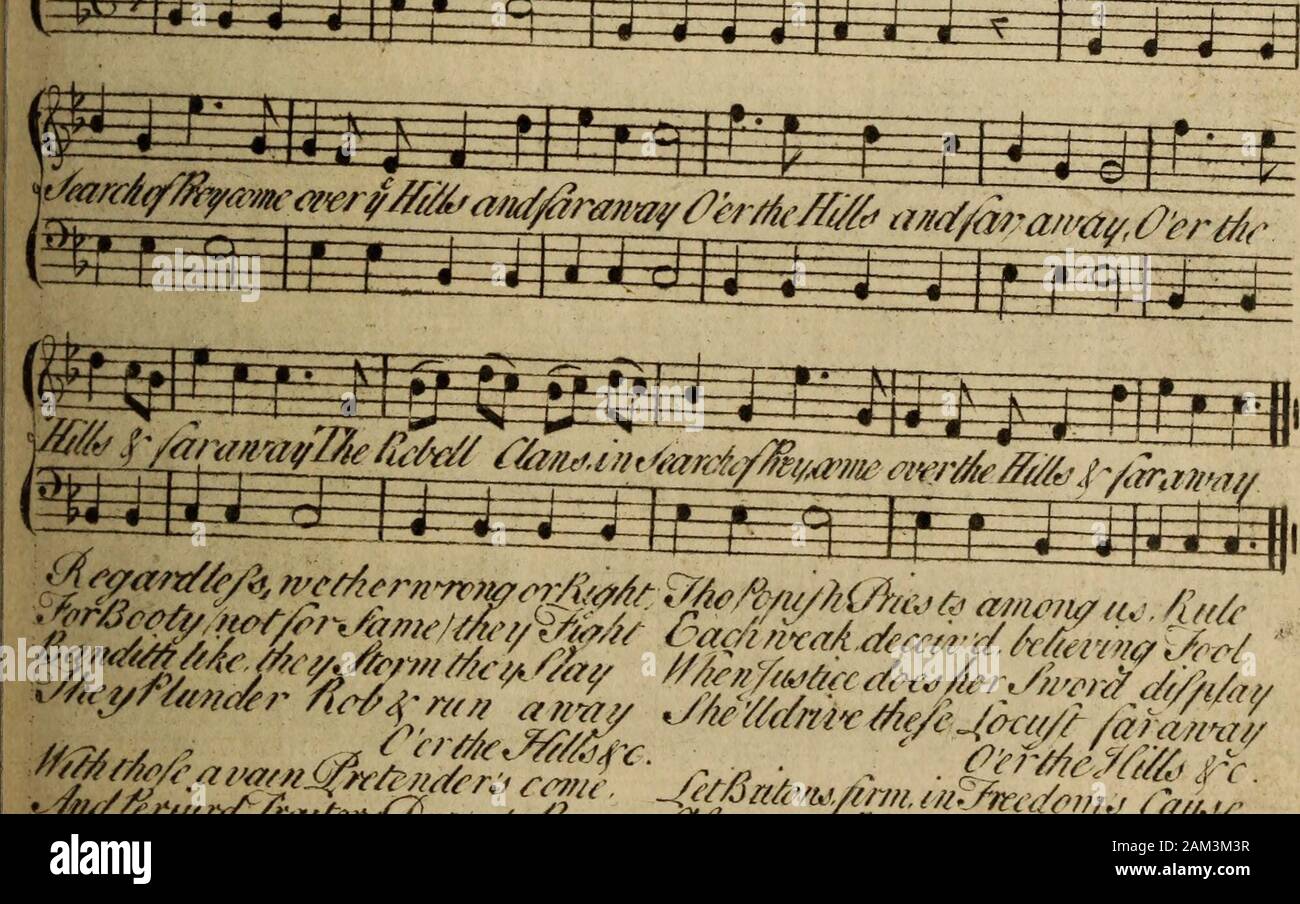 Search of Prey come over yᵉ Hills and far away O'er the Hills and far away, O'er the
Hills & far away The Rebell Clans in Search of Prey, come over the Hills & far away
Regardleſs, wether wrong or Right,
For Booty (not for Fame) they Fight
Banditti like, they Storm they Slay
They Plunder Rob & run away
O'er the Hills &c.
With thoſe a vain Pretender's come,
And Perjurd Traitor
Tho Popiſh Prieſts among us, Rule
Each weak, deceiv'd, believing Fool,
When Juſtice does her Sword diſplay
She'll drive theſe Locuſt far away
O'er the Hills &c.
Let Britons, firm, in Freedom's Cauſe
alamy
Image ID: 2AM3M3R
www.alamy.com